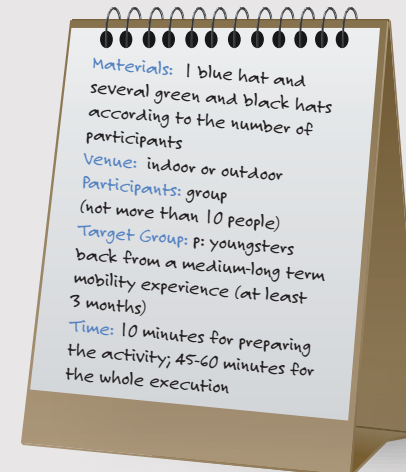 Materials: 1 blue hat and
several green and black hats
according to the number of
participants
Venue: indoor or outdoor
Participants: group
(not more than 10 people)
Target Group: p: youngsters
back from a medium-long term
mobility experience (at least
3 months)
Time: 10 minutes for preparing
the activity; 45-60 minutes for
the whole execution